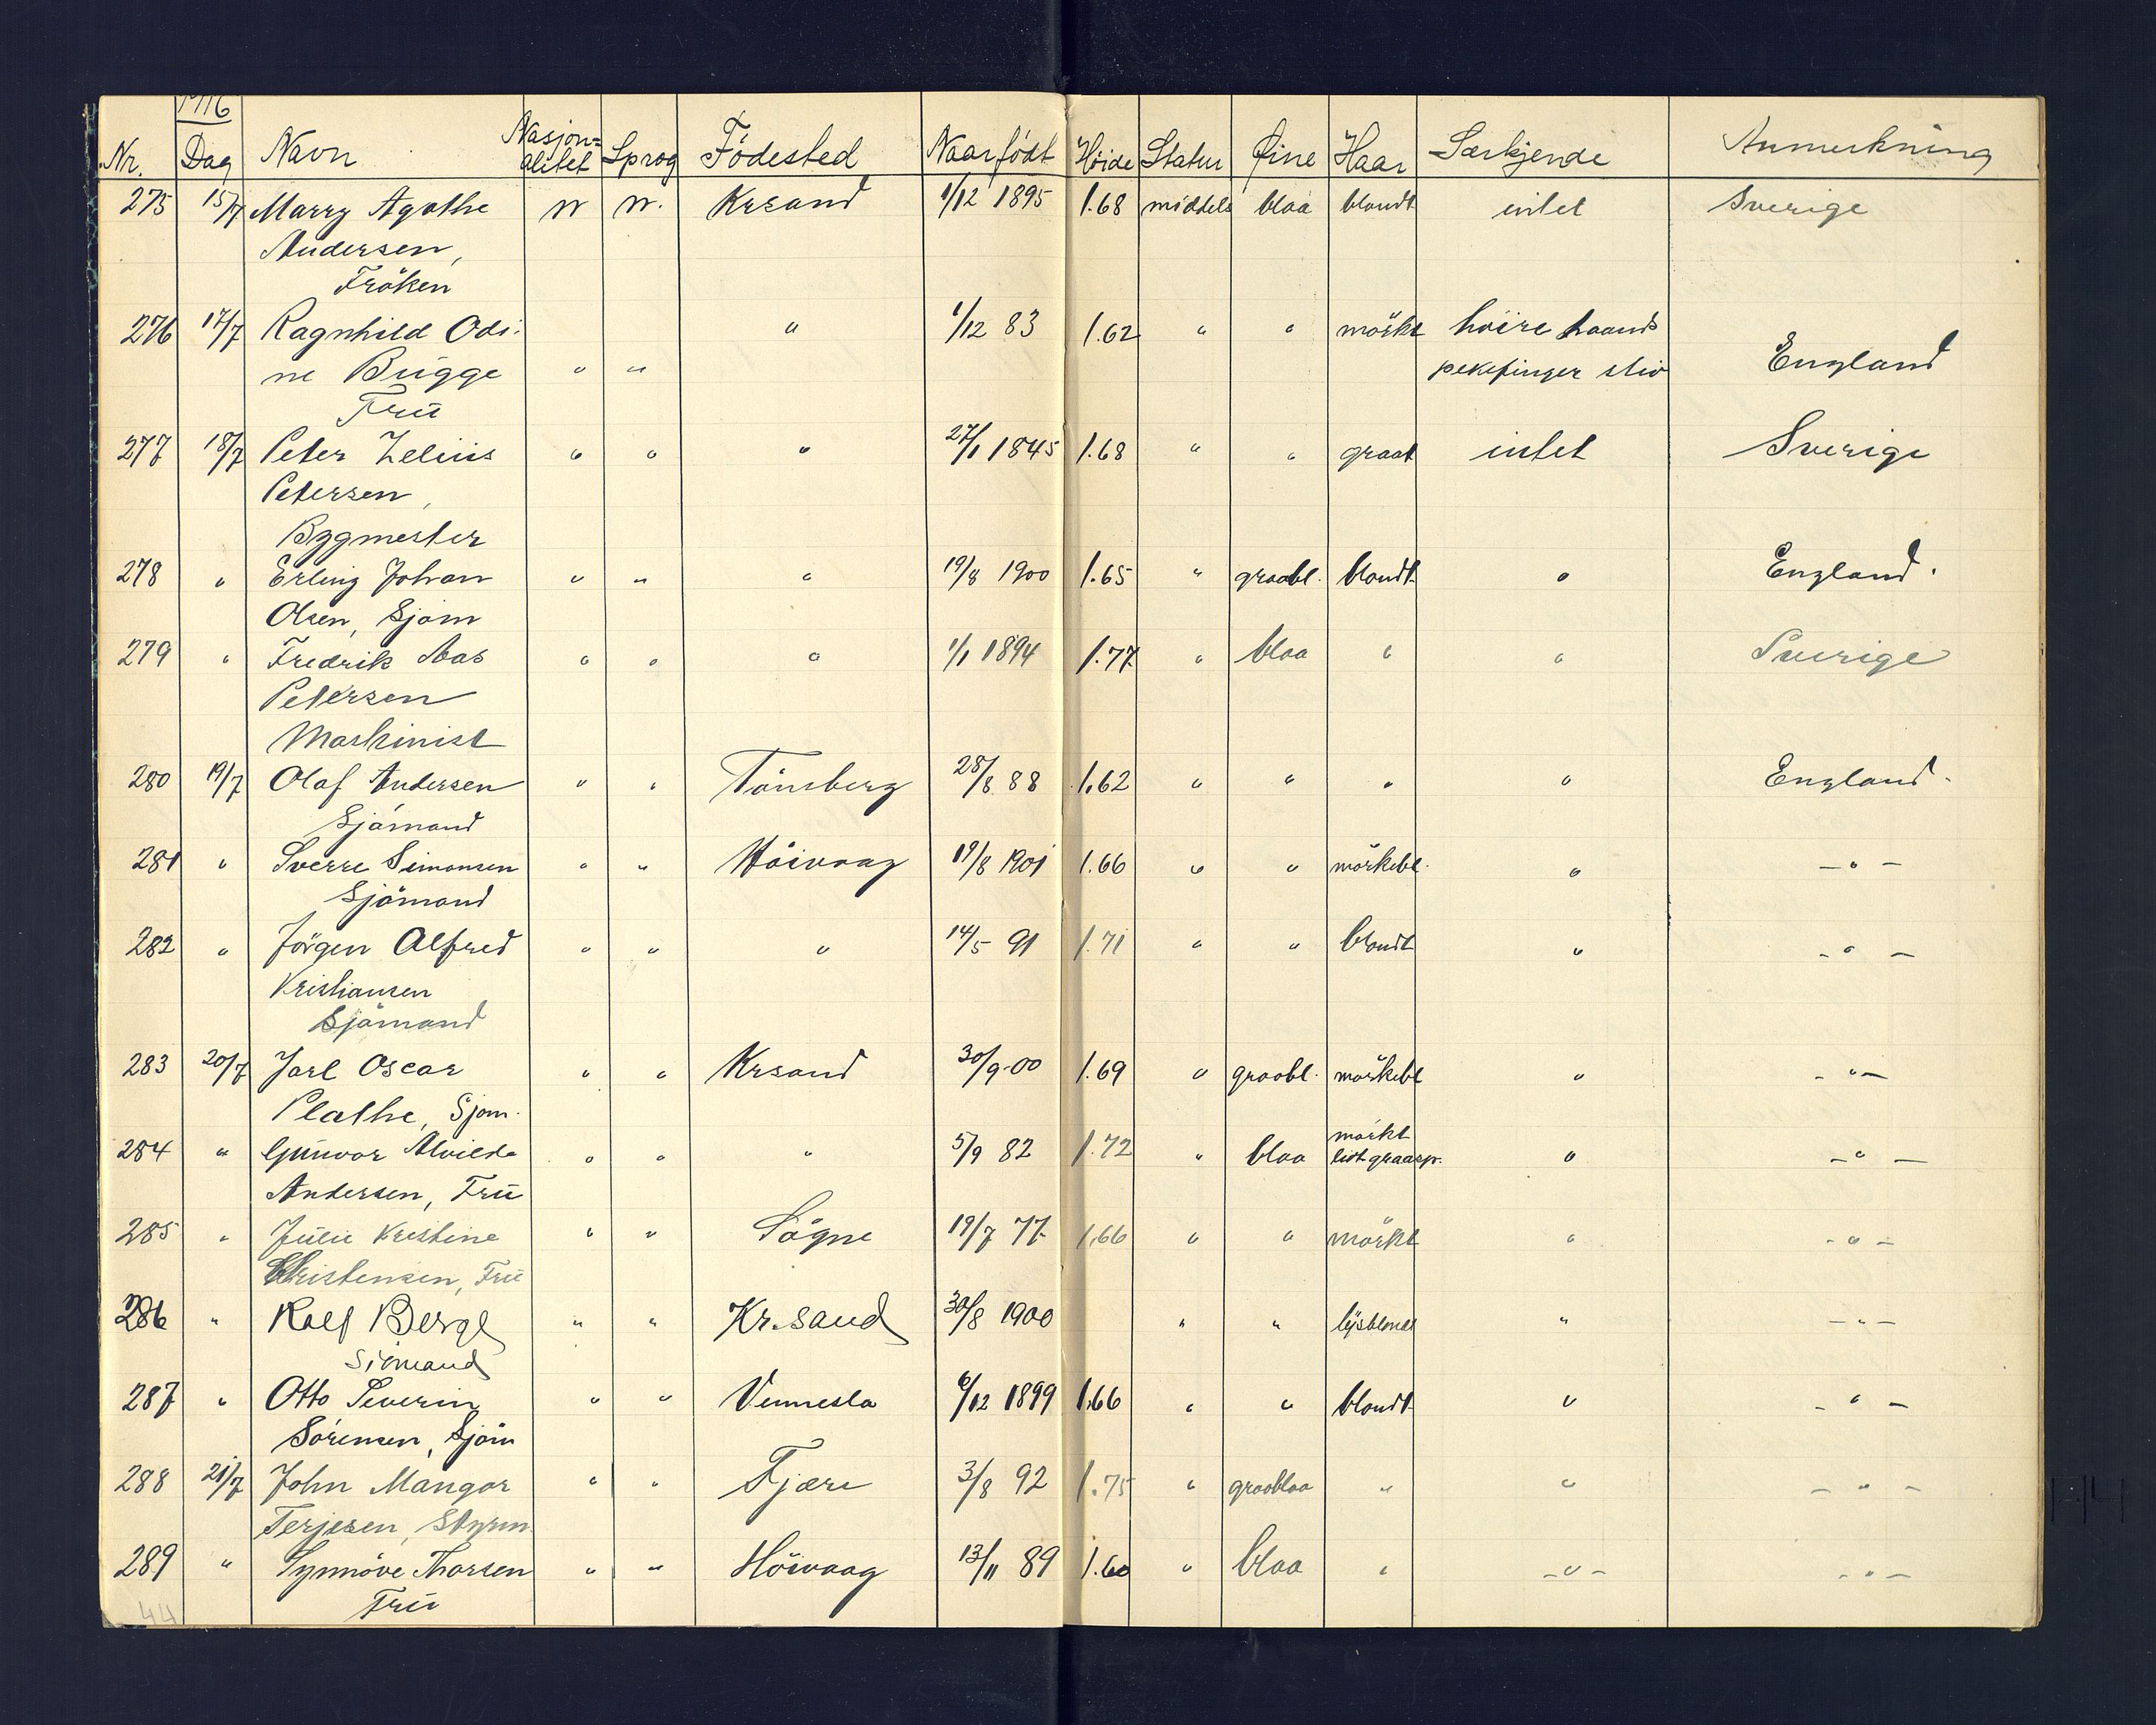 1916
Nr. Dag Navn Nasjon=alitet Sprog Födested Naar födt Höide Statur Öine Haar Særkjende Anmerkning
275 15/7 Marry Agathe N N. Krsand 1/12 1895 1.68 middels blaa blondt intet Sverige
Andersen,
Fröken
276 17/7 Ragnhild Odi- " 1/12 83 1.62 " " mörkt höire haands
ne Brügge " " pekefinger stiv England
Frü
277 18/7 Peter Zeliüs " " " 27/1 1845 1.68 " " graat intet Sverige
Petersen,
Bygmester
278 " Erling Johan " " " 19/8 1900 1.65 " graabl. blondt " England.
Olsen, Sjöm
279 " Fredrik Aas " " " 1/1 1894 1.77 " blaa " " Sverige
Petersen
Maskinist
280 19/7 Olaf Andersen " " Tönsberg 28/8 88 1.62 " " " " England.
Sjömand
281 " Sverre Simonsen " " Höivaag 19/8 1901 1.66 " " mörkebl. " - " -
Sjömand
282 " Jörgen Alfred " " " 14/5 91 1.71 " " blondt " - " -
Kristiansen
Sjömand
283 20/7 Jarl Oscar " " Krsand 30/9-00 1.69 " graabl. mörkebl " - " -
Plathe, Sjöm.
mörkt
284 " Günvor Alvilde " " " 5/9 82 1.72 " blaa lidt graaspr. " - " -
Andersen, Frü
285 " Jülie Kristine " " Sögne 19/7 77 1.66 " " mörkt " - " -
Christensen, Frü
286 " Rolf Berge " " Kr.sand 30/8 1900 " " lysblondt " - " -
Sjömand
287 " Otto Severin " " Vennesla 6/12 1899 1.66 " " blondt " - " -
Sörensen, Sjöm
288 21/7 John Mangor " " Fjære 3/8 92 1.75 " graablaa " " - " -
Terjesen, Styrm.
289 " Synnöve Thorsen " " Höivaag 13/11 89 1.60 " blaa " - " - - " -
Frü
44